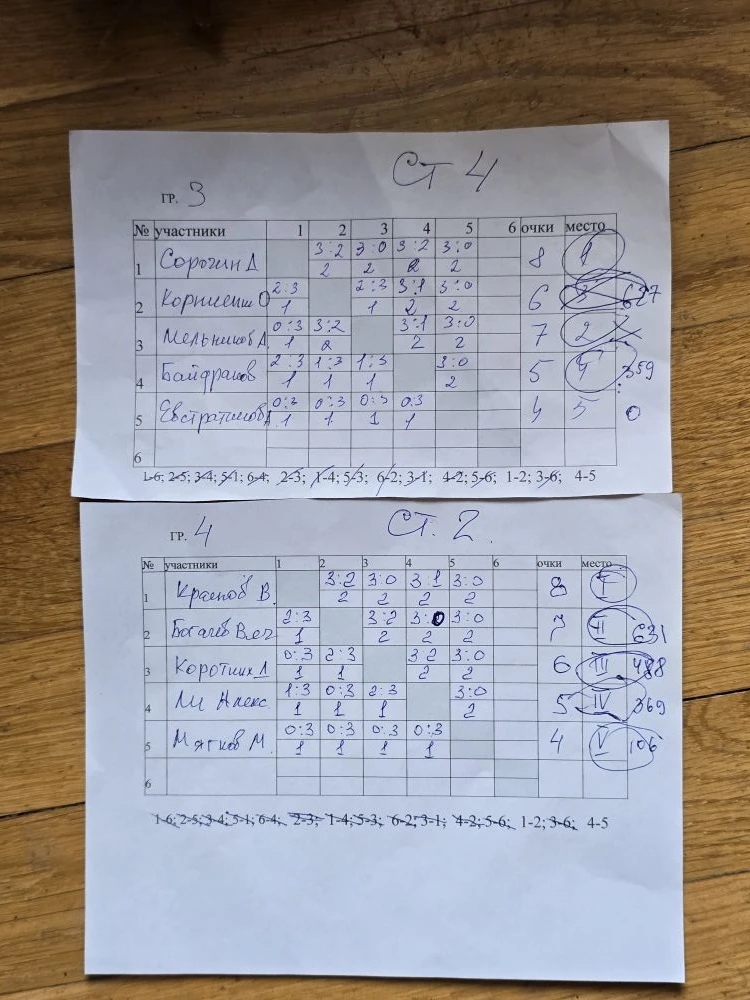 Ст 4
гр. 3
№ участники 1 2 3 4 5 6 очки место
1 Сорочин А 3:2 3:0 3:2 3:0 8 1
2 2 2 2
2 О 2:3 2:3 3:1 3:0 6 3 627
1 1 2 2
3 Мельников А. 0:3 3:2 3:1 3:0 7 2
1 2 2 2
4 2:3 1:3 1:3 3:0 5 4 359
1 1 1 2
5 Евстратов 0:3 0:3 0:3 0:3 4 5 0
1 1 1 1
6
1-6; 2-5; 3-4; 5-1; 6-4; 2-3; 1-4; 5-3; 6-2; 3-1; 4-2; 5-6; 1-2; 3-6; 4-5
гр. 4 Ст. 2.
№ участники 1 2 3 4 5 6 очки место
1 Краснов В. 3:2 3:0 3:1 3:0 8 I
2 2 2 2
2 Богачёв Вяч 2:3 3:2 3:0 3:0 7 II 631
1 2 2 2
3 Коротких Л 0:3 2:3 3:2 3:0 6 III 488
1 1 2 2
4 Ли Алекс. 1:3 0:3 2:3 3:0 5 IV 369
1 1 1 2
5 Мягков М. 0:3 0:3 0:3 0:3 4 V 106
1 1 1 1
6
1-6; 2-5; 3-4; 5-1; 6-4; 2-3; 1-4; 5-3; 6-2; 3-1; 4-2; 5-6; 1-2; 3-6; 4-5